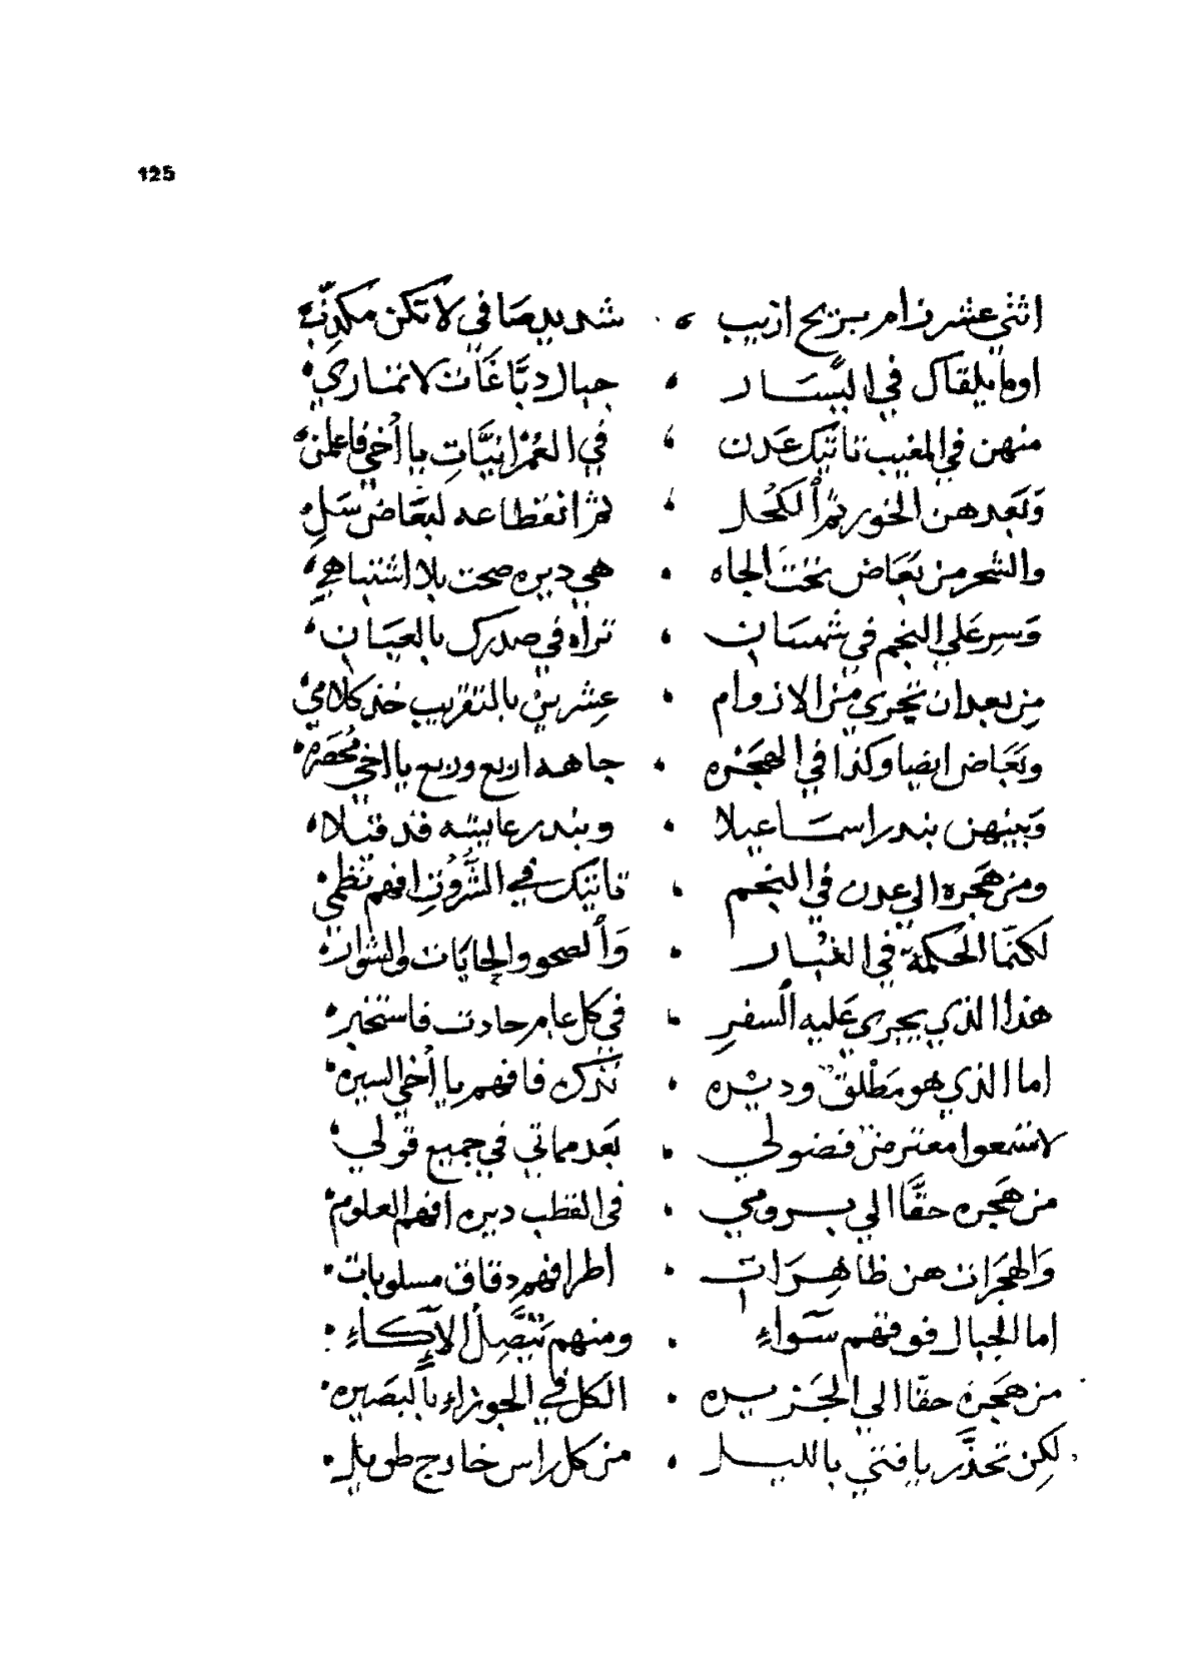 125
اثني عشر زام بريح ازيب ، شديد صافي لا تكن مكذب
اوما يلقاك في اليسار ، جبال دباغات لا تماري
منهن في المغيب تاتيك عدن ، في العمرانيات يا أخي فاعلمن
وبعدهن الخور ثم الكحل ، ثم انقطاعه لبعاض سل
والشحر من بعاض تحت الجاه ، هي ديره صحت بلا اشتباهي
وسر علي النجم في شمسان ، تراه في صدرك بالعيان
من بعد ان تجري من الازوام ، عشرين بالتقريب خذ كلامي
وبعاض ايضا وكذا في الهجره ، جاهه اربع وربع يا اخي محضره
وبينهن بندر اسماعيلا ، وبندر عايشه قد قتلا
ومن هجره الي عدن في النجم ، تاتيك في الشرون افهم نظمي
لكنما الحكمة في الغبار ، وألصحو والجايات والشوار
هذا الذي يجري عليه ألسفر ، في كل عام حادث فاستخبر
اما الذي هو مطلق وديره ، نتركه فافهم يا أخي السيره
لا تسمعوا معترض فضولي ، بعد مماتي في جميع قولي
من هجره حقا الي برومي ، في القطب ديره افهم العلوم
والهجرات هن ظاهرات ، اطرافهم دقاق مسلوبات
اما الجبال فوقهم سوآء ، ومنهم تتصل ألآكاء
من هجرة حقا الي الجزيره ، الكل في ألجوزاء بألبصيره
لكن تحذر يا فتي بالليل ، من كل راس خارج طويل